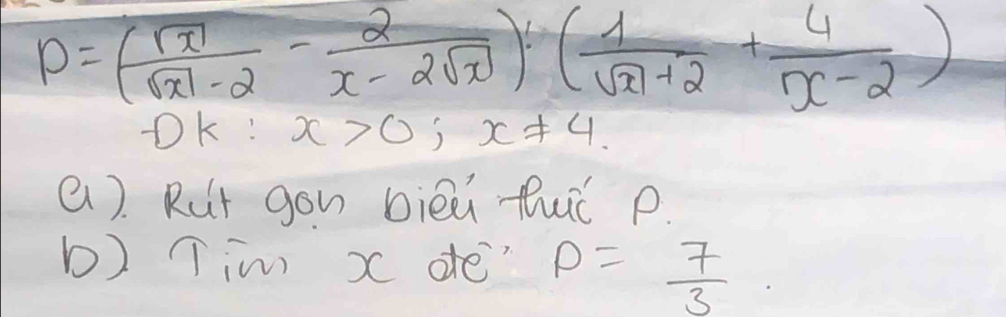 P = (√x/(√x - 2) - 2/(x - 2√x)) : (1/(√x + 2) + 4/(x - 2))
ĐK : x > 0 ; x ≠ 4.
a). Rút gọn biểu thức P.
b) Tìm x để P = 7/3.